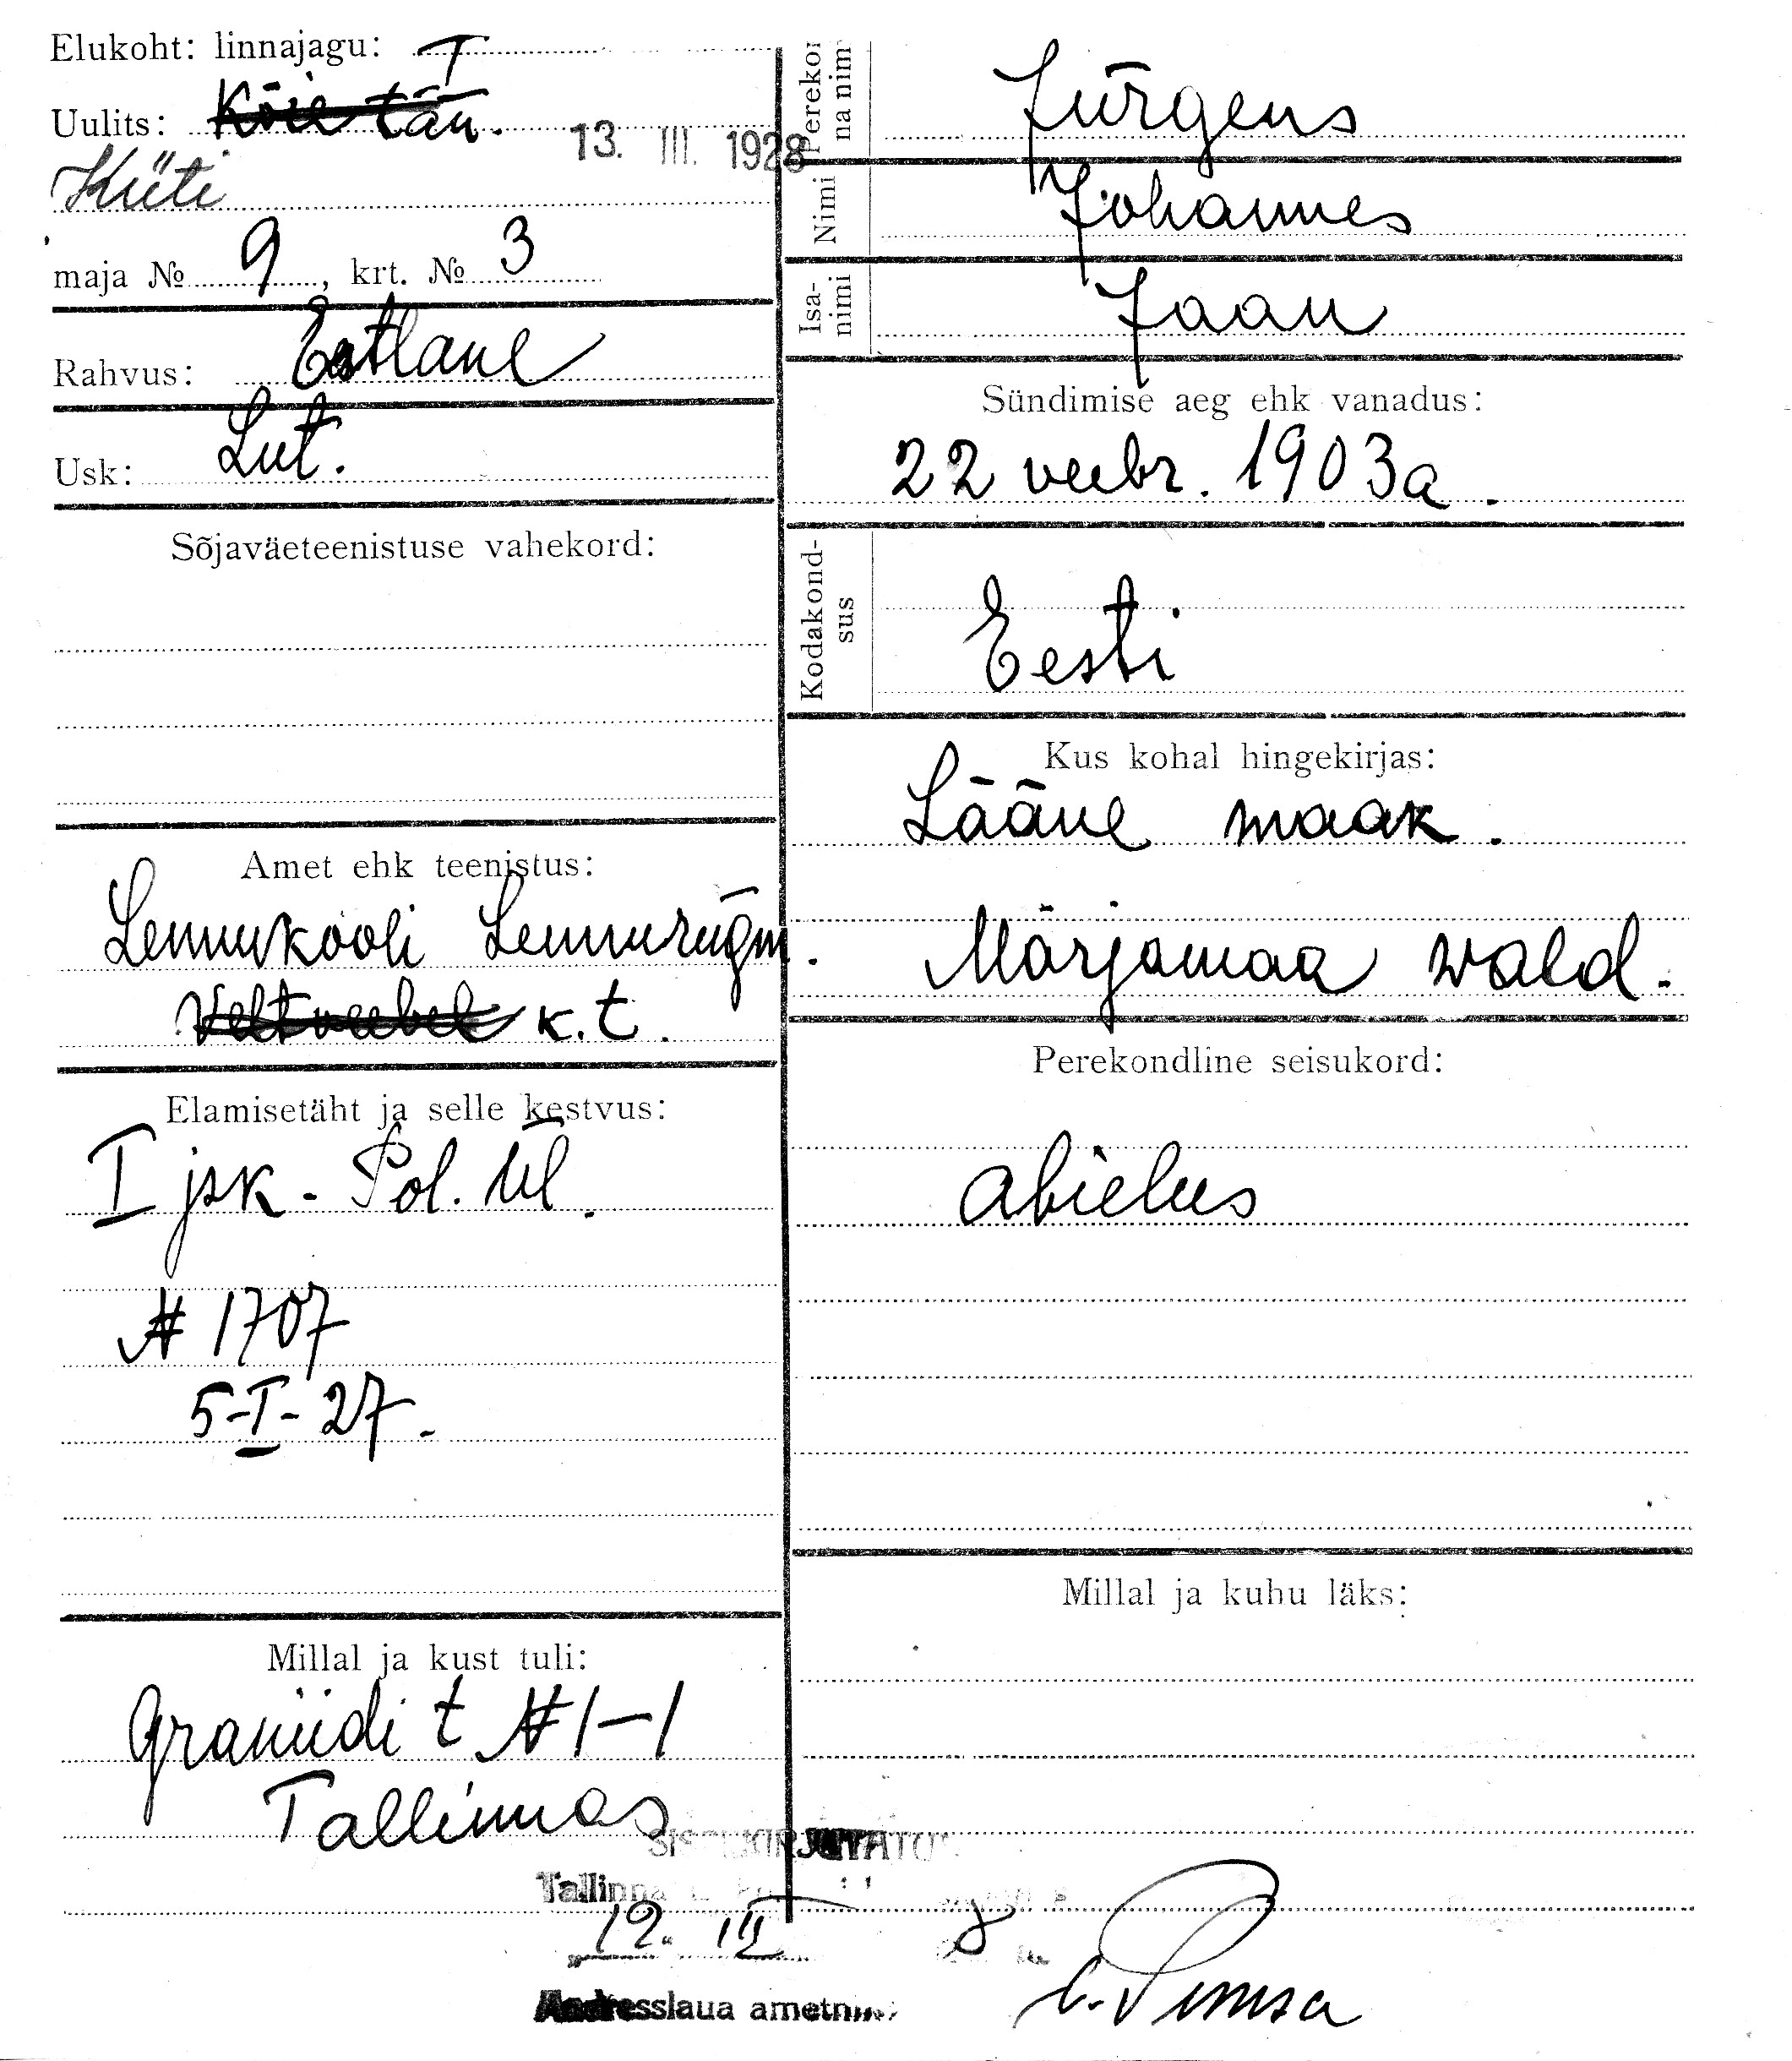 Elukoht: linnajagu: I
Uulits: Köie tän.
13. III. 1928
Küti
maja № 9, krt. № 3
Rahvus: Eestlane
Usk: Lut.
Sõjaväeteenistuse vahekord:
Amet ehk teenistus:
Lennukooli Lennurügm.
Veltveebel k.t.
Elamisetäht ja selle kestvus:
I jsk. Pol. Ül.
№ 1707
5-I-27.
Millal ja kust tuli:
Graniidi t № 1-1
Tallinnas
Perekon
na nim
Jürgens
Nimi
Johannes
Isa-
nimi
Jaan
Sündimise aeg ehk vanadus:
22 veebr. 1903a.
Kodakond-
sus
Eesti
Kus kohal hingekirjas:
Lääne maak.
Märjamaa vald.
Perekondline seisukord:
abielus
Millal ja kuhu läks:
SISSEKIRJUTATUD
Tallinna
12. III 8
Aadresslaua ametnik